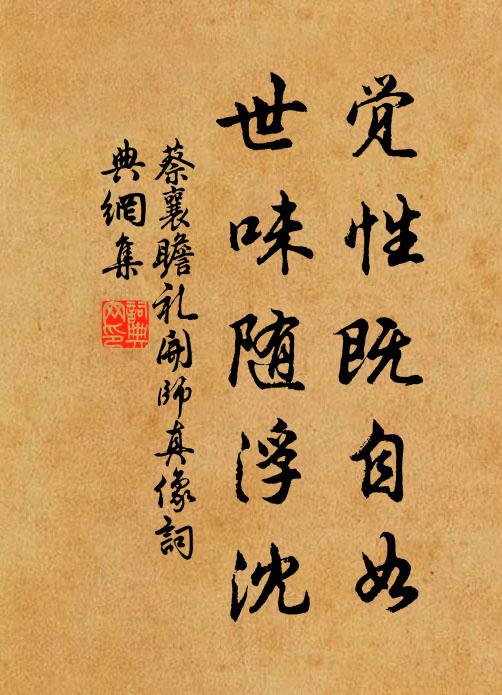 觉性既自如
世味随浮沈
蔡襄瞻礼开师真像词
典網集
詞典
网印